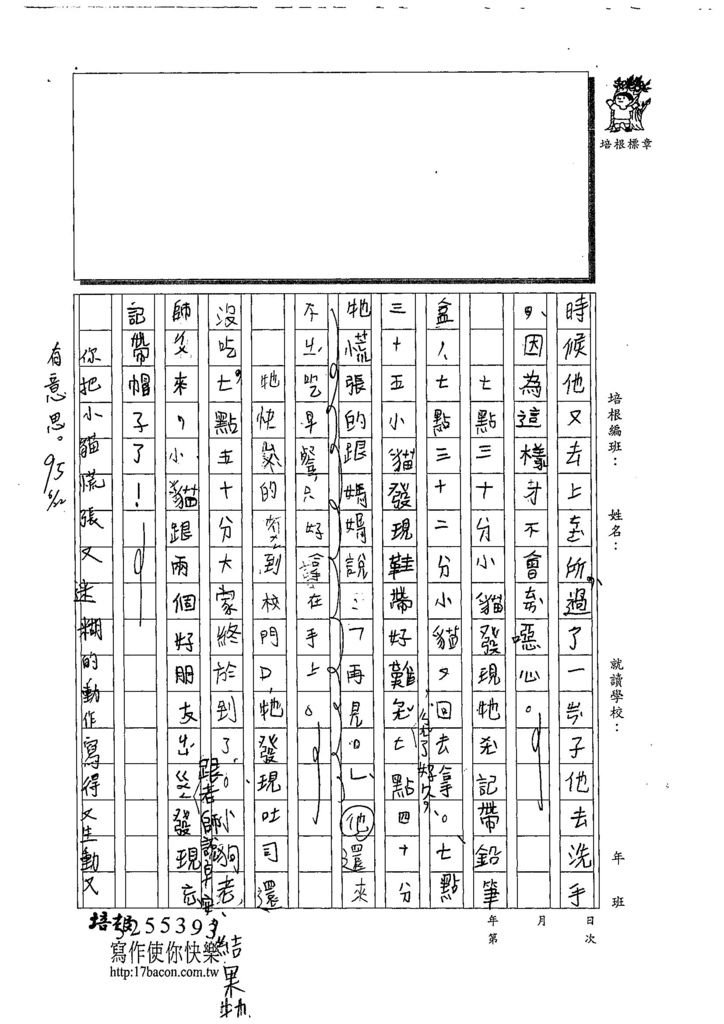 培根標章
培根編班：
姓名：
就讀學校：
年 班
日 月 年
次 第
時候他又去上在所，過了一岢子他去洗手
，因為這樣才不會噁心。
七點三十分小貓發現牠忘記帶鉛筆
盒，七點三十二分小貓又回去拿。七點
三十五小貓發現鞋帶好難七點四十分
牠慌張的跟媽媽說：「再見。」他還來
不出吃早餐只好拿在手上。
牠快的到校門口，牠發現吐司還
沒吃，七點五十分大家終於到了。小狗老
師來，小貓跟兩個好朋友出發現忘
記帶帽子了！
綁了好久，
跟老師說早安，
結果牠
你把小貓慌張又迷糊的動作寫得又生動又
有意思。95
培根
5255393
寫作使你快樂
http:17bacon.com.tw